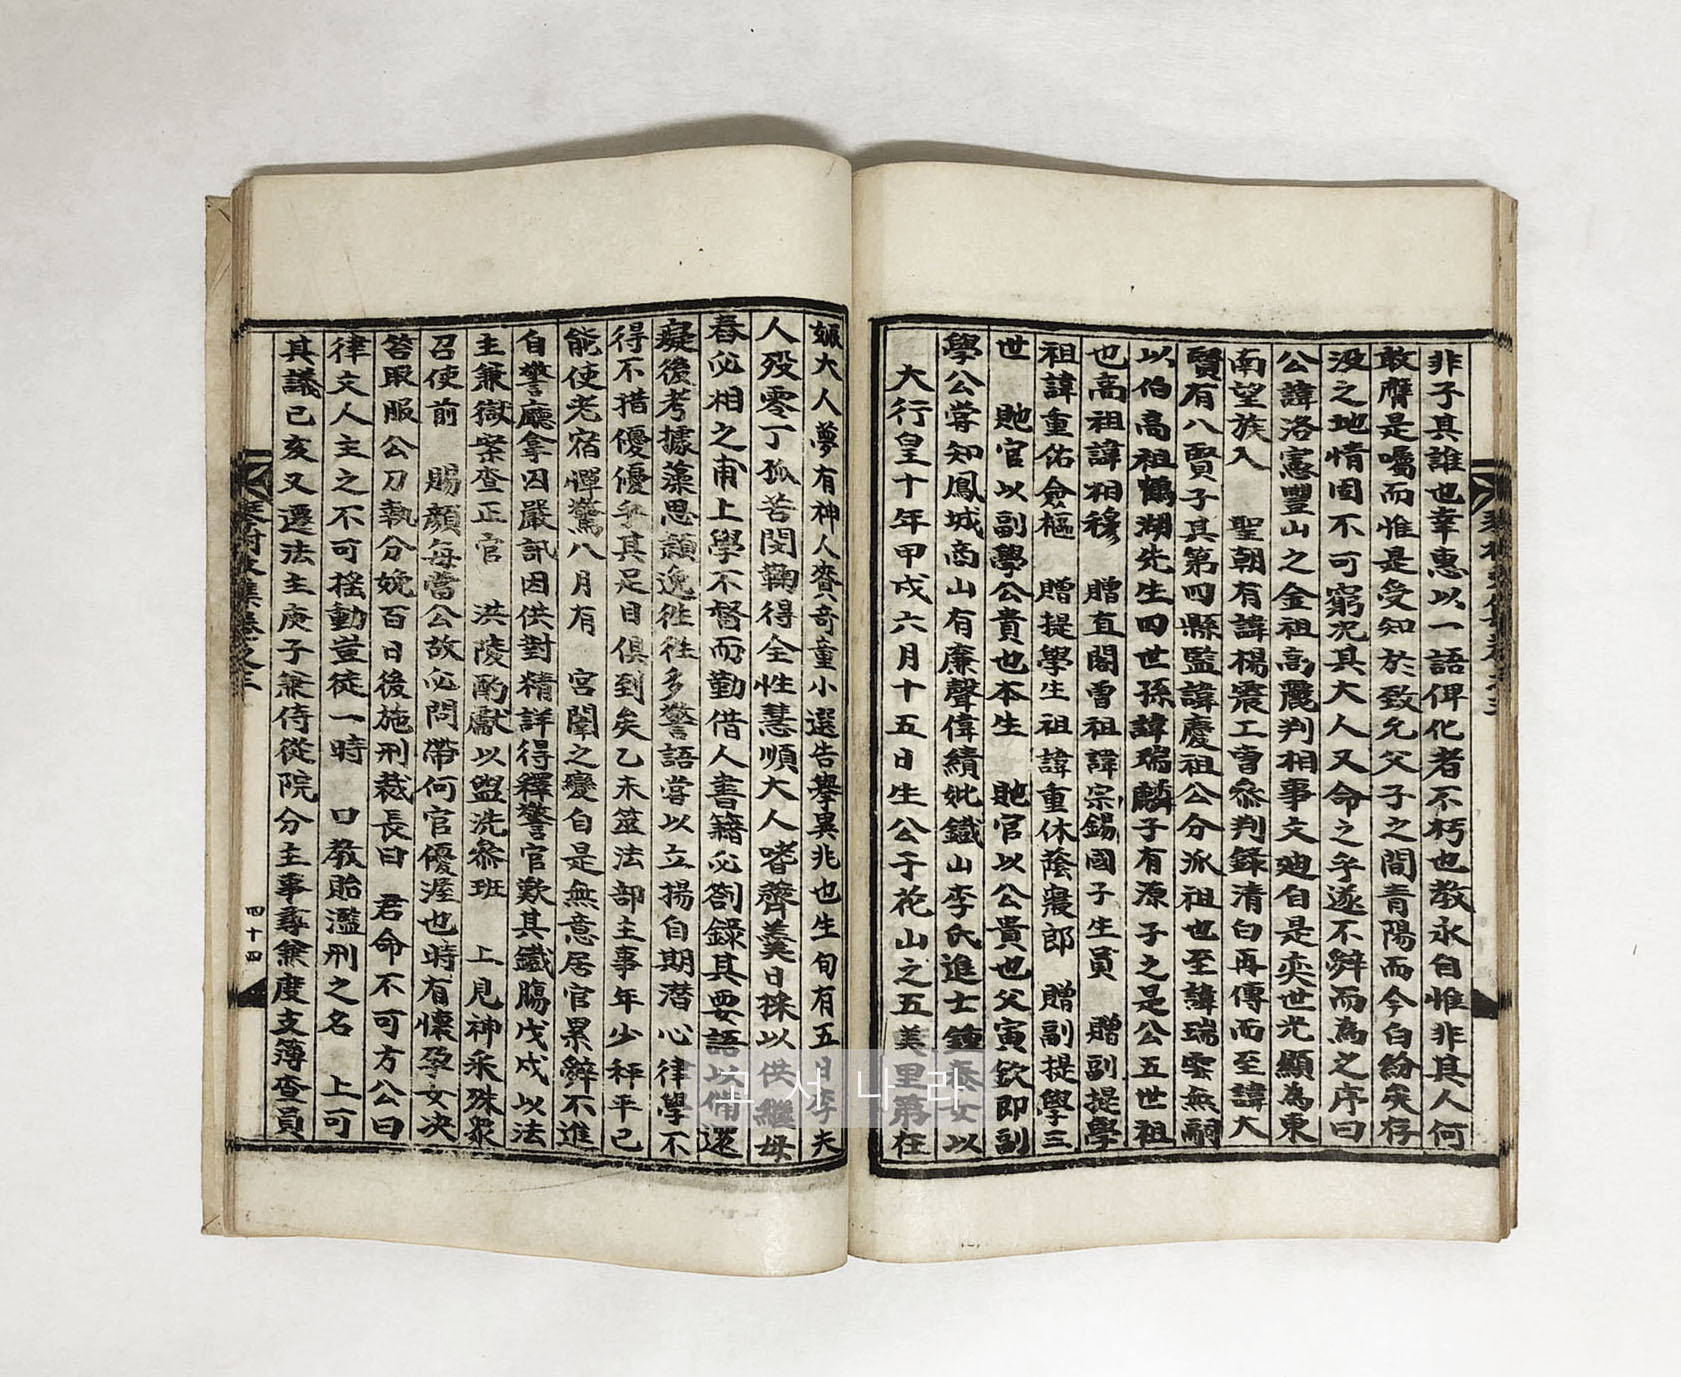 非子其誰也幸惠以一語俾化者不朽也敎永自惟非其人何
敢膺是囑而惟是受知於致允父子之間靑陽而今白紛矣存
沒之地情固不可窮况其大人又命之乎遂不辭而爲之序曰
公諱洛憲豐山之金祖高麗判相事文迪自是奕世光顯爲東
南望族入 聖朝有諱楊震工曹叅判錄淸白再傳而至諱大
賢有八賢子其第四縣監諱慶祖公分派祖也至諱瑞雲無嗣
以伯高祖鶴湖先生四世孫諱瑞麟子有源子之是公五世祖
也高祖諱相穆 贈直閣曾祖諱宗錫國子生員 贈副提學
祖諱重佑僉樞 贈提學生祖諱重休蔭寢郎 贈副提學三
世 貤官以副學公貴也本生 貤官以公貴也父寅欽卽副
學公嘗知鳳城商山有廉聲偉績妣鐵山李氏進士鍾泰女以
大行皇十年甲戌六月十五日生公于花山之五美里第在
娠大人夢有神人賚奇童小選告擧異兆也生旬有五日李夫
人歿零丁孤苦閔鞠得全性慧順大人嗜薺羹日採以供繼母
春必相之甫上學不督而勤借人書籍必箚錄其要語以備遺
凝後考據藻思穎逸往往多警語嘗以立揚自期潛心律學不
得不措優優乎其足目俱到矣乙未筮法部主事年少秤平已
能使老宿憚驚八月有 宮闈之變自是無意居官累辭不進
自警廳拿囚嚴訊因供對精詳得釋警官歎其鐵膓戊戌以法
主兼嶽案查正官 洪陵酌獻以盥洗叅班 上見神采殊衆
召使前 賜顔每當公故必問帶何官優渥也時有懷孕女决
笞照服公刀執分娩百日後施刑裁長曰 君命不可方公曰
律文人主之不可搖動豈徒一時 口敎貽濫刑之名 上可
其議已亥又遷法主庚子兼侍從院分主事尋兼度支簿查員
四十四
고서나라